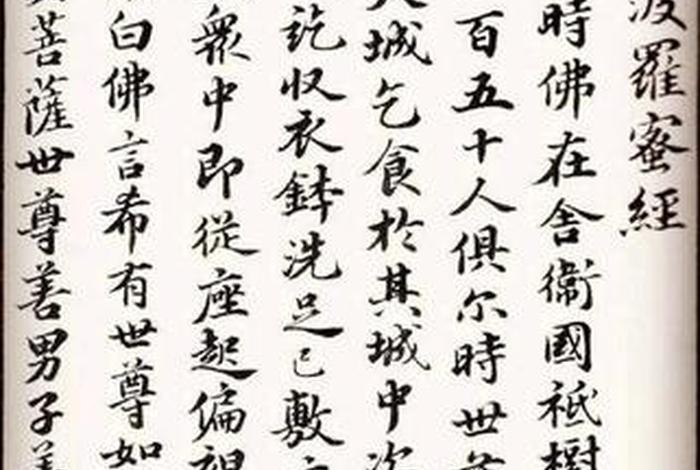 波羅蜜經
時佛在舍衛國祇樹
百五十人俱尔時世
城乞食於其城中次
訖収衣鉢洗足已敷
衆中即從座起偏袒
白佛言希有世尊如
菩薩世尊善男子善